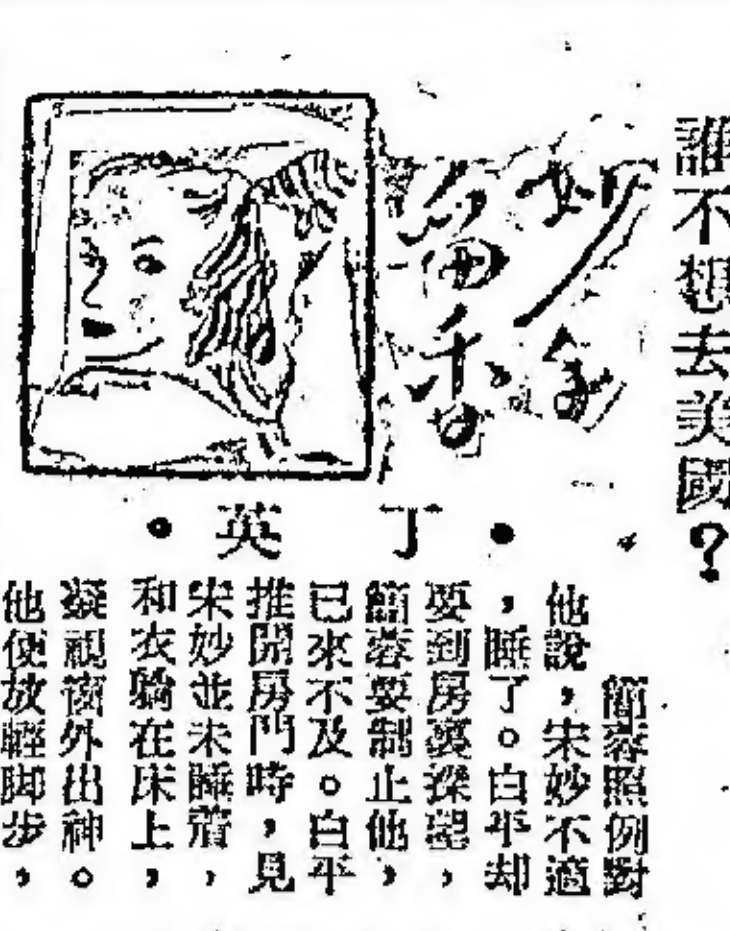 誰不想去美國？
妙
留香
•丁英•
簡蓉照例對
他說，宋妙不適
，睡了。白平却
要到房裏探望，
簡蓉要制止他，
已來不及。白平
推開房門時，見
宋妙並未睡着，
和衣躺在床上，
凝視窗外出神。
他便放輕脚步，